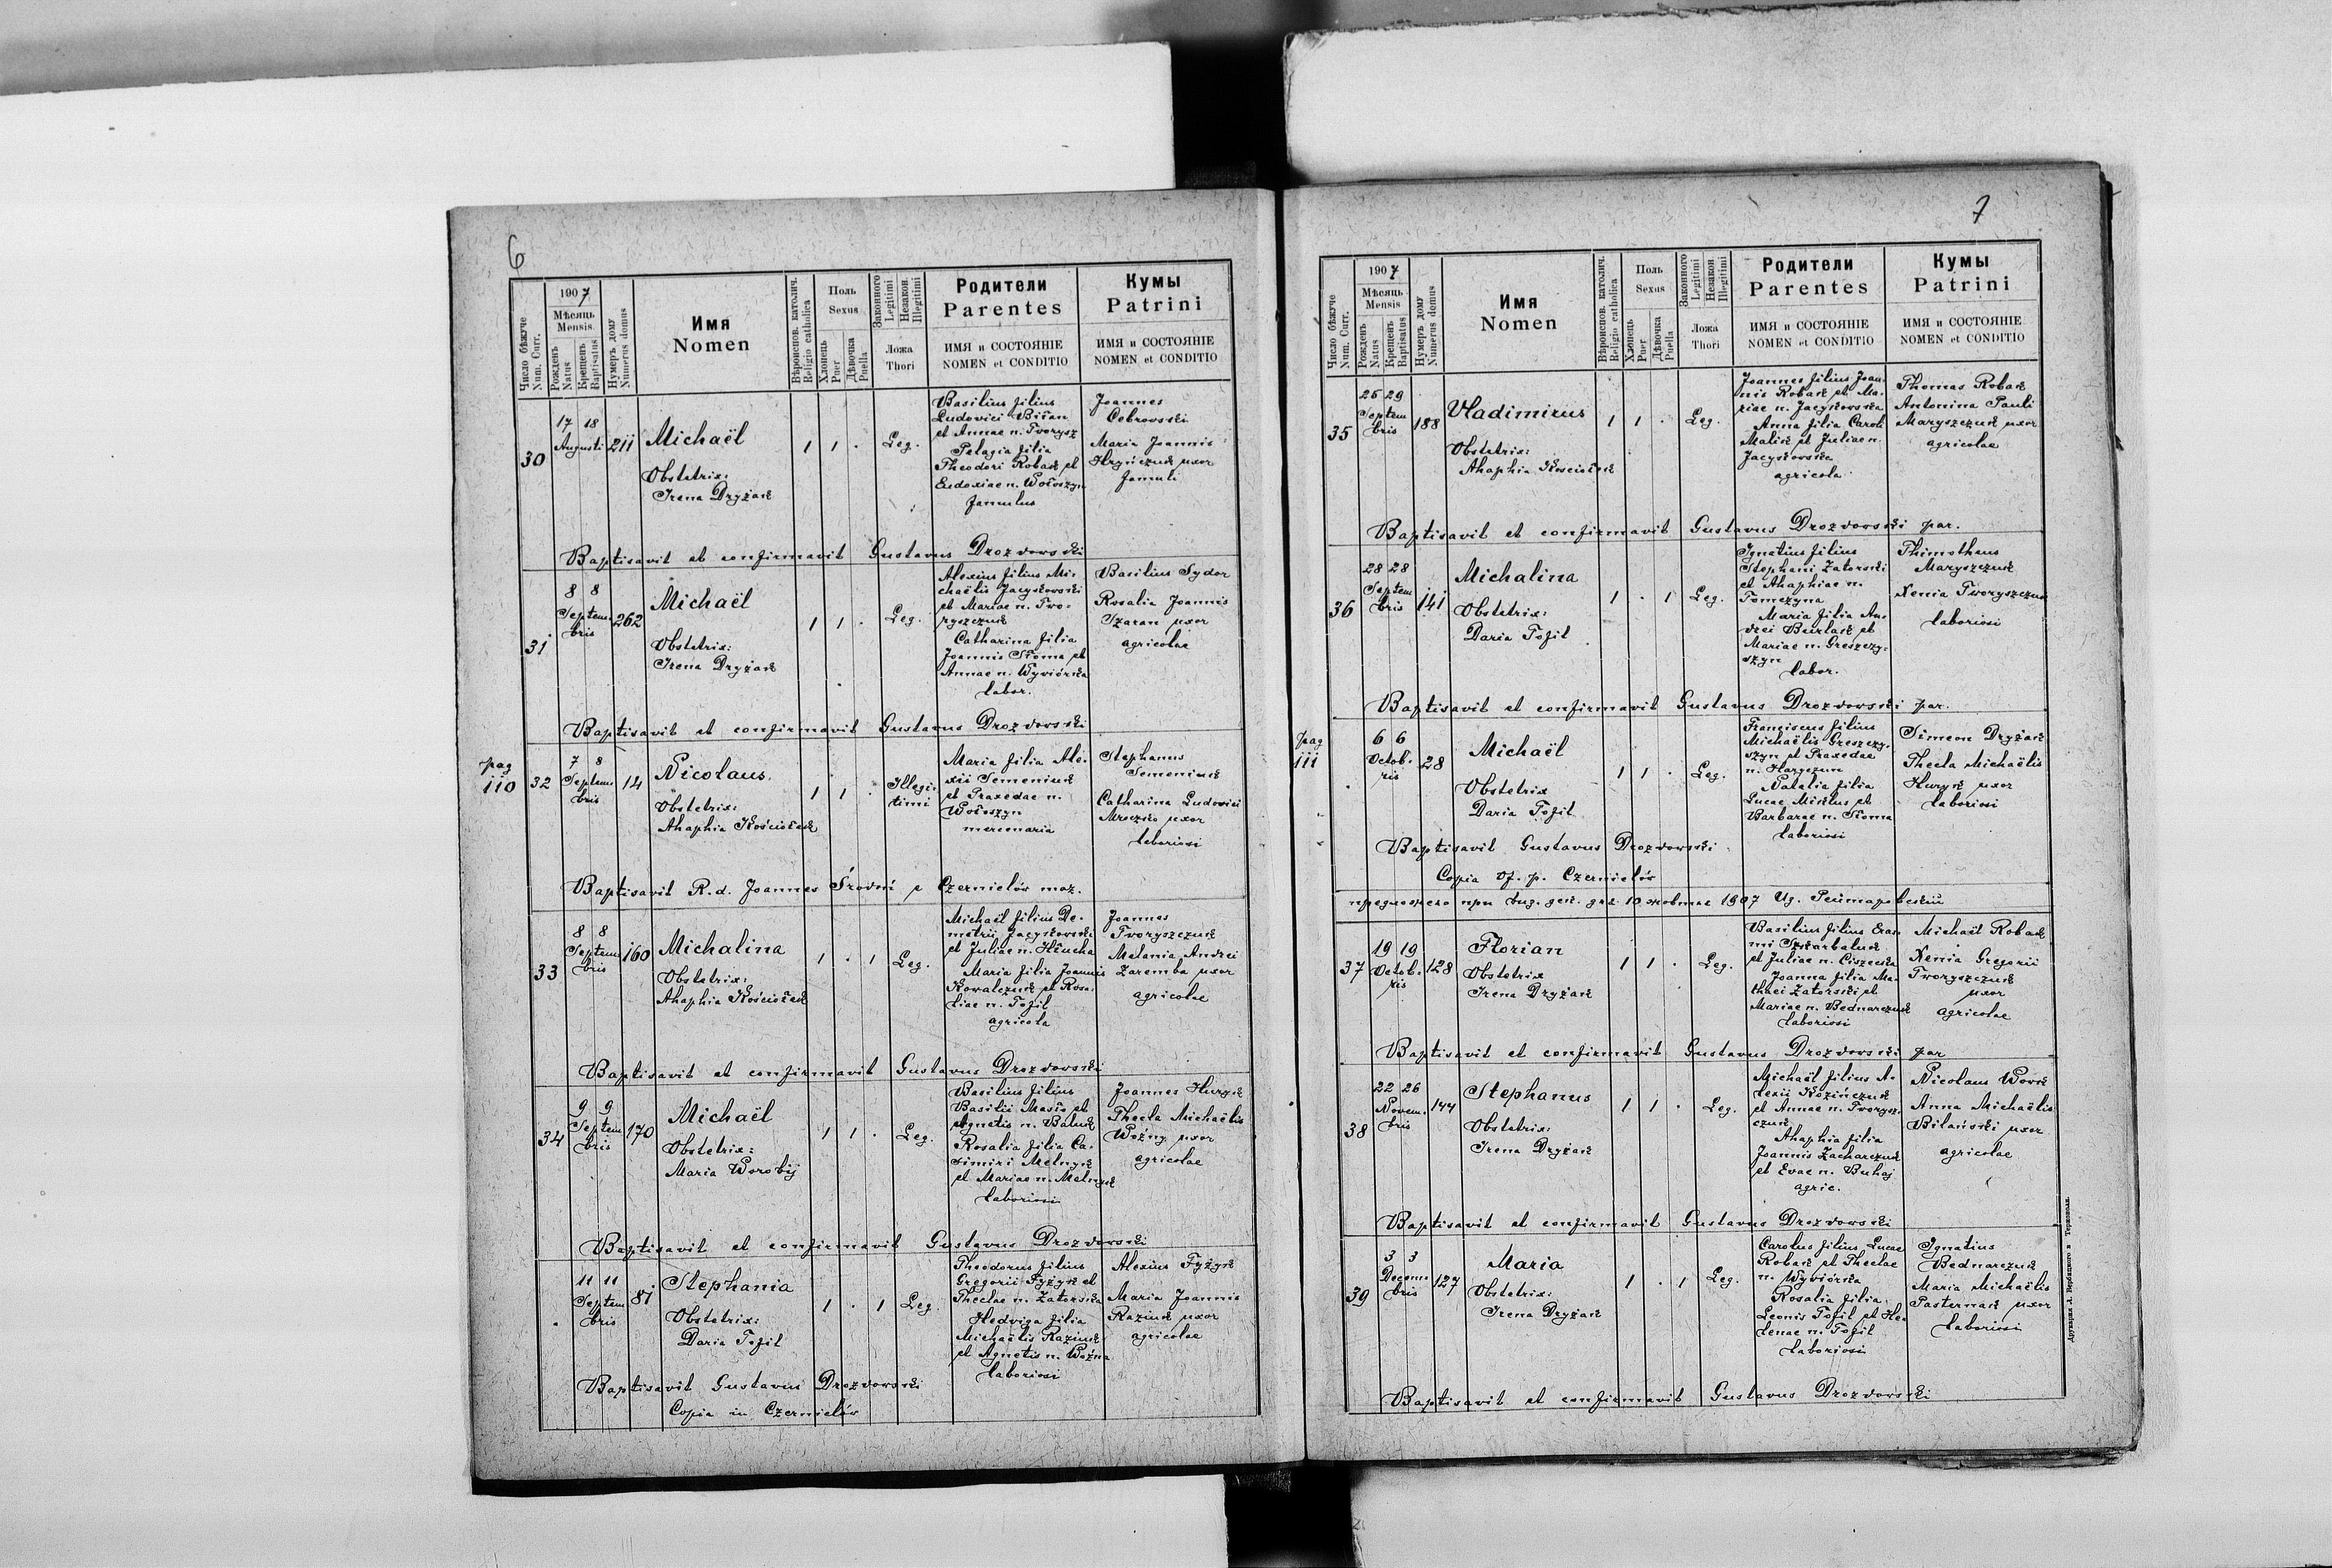 6
Число бѣжуче
Num. Curr.
1907
Мѣсяць
Mensis
Рожденъ
Natus
Крещенъ
Baptisatus
Нумеръ дому
Numerus domus
Имя
Nomen
Вѣроиспов. католич.
Religio catholica
Поль
Sexus
Хлопець
Puer
Дѣвочка
Puella
Законного
Legitimi
Незакон.
Illegitimi
Ложа
Thori
Родители
Parentes
ИМЯ и СОСТОЯНІЕ
NOMEN et CONDITIO
Кумы
Patrini
ИМЯ и СОСТОЯНІЕ
NOMEN et CONDITIO
30
17 18
Augusti
211
Michaël
Obstetrix:
Irena Dryżak
1 1 .
Leg.
Basilius filius
Ludovici Biłan
et Annae n. Tworysz
Pelagia filia
Theodori Robak et
Eudoxiae n. Wołoszyn
famulus
Joannes
Cebrowski
Maria Joannis
Hryńczuk uxor
famuli
Baptisavit et confirmavit Gustavus Drozdowski
31
8 8
Septem-
bris
262
Michaël
Obstetrix:
Irena Dryżak
1 1 .
Leg.
Alexius filius Mi-
chaëlis Jacyszowski
et Mariae n. Two-
ryszczuk
Catharina filia
Joannis Słoma et
Annae n. Wywiórka
labor.
Basilius Sydor
Rosalia Joannis
Szaran uxor
agricolae
Baptisavit et confirmavit Gustavus Drozdowski
pag
110
32
7 8
Septem
bris
14
Nicolaus
Obstetrix:
Ahaphia Kościołek
1 1 .
Illegi-
timi
Maria filia Ale-
xii Semeniuk
et Praxedae n.
Wołoszyn
mercenaria
Stephanus
Semeniuk
Catharina Ludovici
Mroczko uxor
laboriosi
Baptisavit R.d. Joannes Środoń e Czernielów maz.
33
8 8
Septem
bris
160
Michalina
Obstetrix:
Ahaphia Kościołek
1 . 1
Leg.
Michaël filius De-
metrii Jacyszowski
et Juliae n. Hłucha
Maria filia Joannis
Kowalczuk et Rosa-
liae n. Tofil
agricola
Joannes
Tworyszczuk
Melania Andrei
Zaremba uxor
agricolae
Baptisavit et confirmavit Gustavus Drozdowski
34
9 9
Septem
bris
170
Michaël
Obstetrix:
Maria Worobij
1 1 .
Leg.
Basilius filius
Basilii Masło et
Agnetis n. Baluk
Rosalia filia Ca-
simiri Melnyk
et Mariae n. Melnyk
laboriosi
Joannes Huryk
Thecla Michaëlis
Woźny uxor
agricolae
Baptisavit et confirmavit Gustavus Drozdowski
11 11
Septem
bris
81
Stephania
Obstetrix:
Daria Tofil
1 . 1
Leg.
Theodorus filius
Gregorii Fyżyk et
Theclae n. Zatorska
Hedviga filia
Michaëlis Raziuk
et Agnetis n. Woźna
laboriosi
Alexius Fyżyk
Maria Joannis
Raziuk uxor
agricolae
Baptisavit Gustavus Drozdowski
Copia in Czernielów
7
Число бѣжуче
Num. Curr.
1907
Мѣсяць
Mensis
Рожденъ
Natus
Крещенъ
Baptisatus
Нумеръ дому
Numerus domus
Имя
Nomen
Вѣроиспов. католич.
Religio catholica
Поль
Sexus
Хлопець
Puer
Дѣвочка
Puella
Законного
Legitimi
Незакон
Illegitimi
Ложа
Thori
Родители
Parentes
ИМЯ и СОСТОЯНІЕ
NOMEN et CONDITIO
Кумы
Patrini
ИМЯ и СОСТОЯНІЕ
NOMEN et CONDITIO
35
25 29
Septem
bris
188
Vladimirus
Obstetrix:
Ahaphia Kościołek
1 1 .
Leg.
Joannes filius Joan-
nis Robak et Ma-
riae n. Jacyszowska
Anna filia Caroli
Malik et Juliae n.
Jacyszowska
agricola
Thomas Robak
Antonina Pauli
Maryszczuk uxor
agricolae
Baptisavit et confirmavit Gustavus Drozdowski par.
36
28 28
Septem
bris
141
Michalina
Obstetrix:
Daria Tofil
1 . 1
Leg.
Ignatius filius
Stephani Zatorski
et Ahaphiae n.
Tomczyna
Maria filia An-
drei Burlak et
Mariae n. Greszczy-
szyn
labor.
Thimotheus
Maryszczuk
Xenia Tworyszczuk
laboriosi
Baptisavit et confirmavit Gustavus Drozdowski par.
pag
111
6 6
Octob-
ris
28
Michaël
Obstetrix
Daria Tofil
1 1 .
Leg.
Franciscus filius
Michaëlis Greszczy-
szyn et Praxedae
n. Haryczun
Natalia filia
Lucae Mikłus et
Barbarae n. Słoma
laboriosi
Simeon Dryżak
Thecla Michaëlis
Huryk uxor
laboriosi
Baptisavit Gustavus Drozdowski
Copia of. p. Czernielów
предложено при виз. дек. дня 10 жовтня 1907
37
19 19
Octob-
ris
128
Florian
Obstetrix
Irena Dryżak
1 1 .
Leg.
Basilius filius Eras-
mi Szkarbaluk
et Juliae n. Ciszecka
Joanna filia Ma-
thaei Zatorski et
Mariae n. Bednarczuk
laboriosi
Michaël Robak
Xenia Gregorii
Tworyszczuk
uxor
agricolae
Baptisavit et confirmavit Gustavus Drozdowski par
38
22 26
Novem-
bris
144
Stephanus
Obstetrix:
Irena Dryżak
1 1 .
Leg.
Michaël filius A-
lexii Kozińczuk
et Annae n. Tworysz-
czuk
Ahaphia filia
Joannis Zacharczuk
et Evae n. Buhaj
agric.
Nicolaus Wowk
Anna Michaëlis
Bilański uxor
agricolae
Baptisavit et confirmavit Gustavus Drozdowski
39
3 3
Decem-
bris
127
Maria
Obstetrix:
Irena Dryżak
1 . 1
Leg.
Carolus filius Lucae
Robak et Theclae
n. Wywiórka
Rosalia filia
Leonis Tofil et He-
lenae n. Tofil
laboriosi
Ignatius
Bednarczuk
Maria Michaëlis
Pasternak uxor
laboriosi
Baptisavit et confirmavit Gustavus Drozdowski
Друкарня А. Вербицкого в Тернополи.